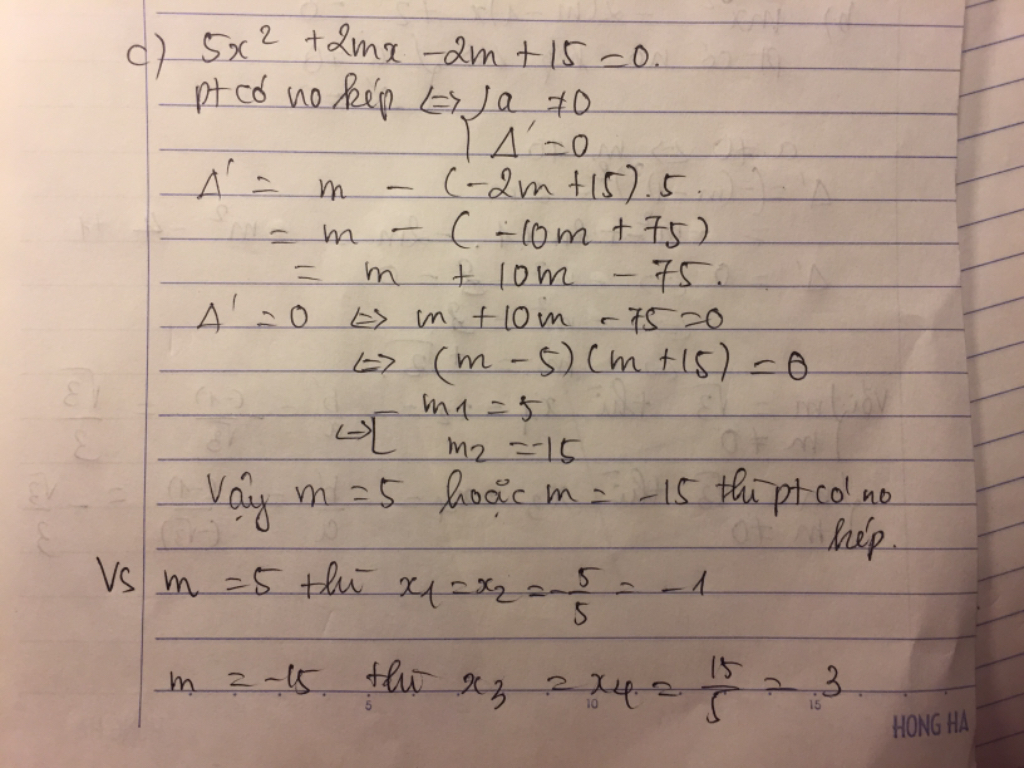 c) 5x² + 2mx - 2m + 15 = 0.
pt có no kép ⇔ { a ≠ 0
Δ' = 0
Δ' = m - (-2m + 15).5.
= m - (-10m + 75)
= m + 10m - 75.
Δ' = 0 ⇔ m + 10m - 75 = 0
⇔ (m - 5)(m + 15) = 0
⇔ [ m1 = 5
m2 = -15
Vậy m = 5 hoặc m = -15 thì pt có no
kép.
Vs m = 5 thì x1 = x2 = -5/5 = -1
m = -15 thì x3 = x4 = 15/5 = 3
5 10 15
HONG HA